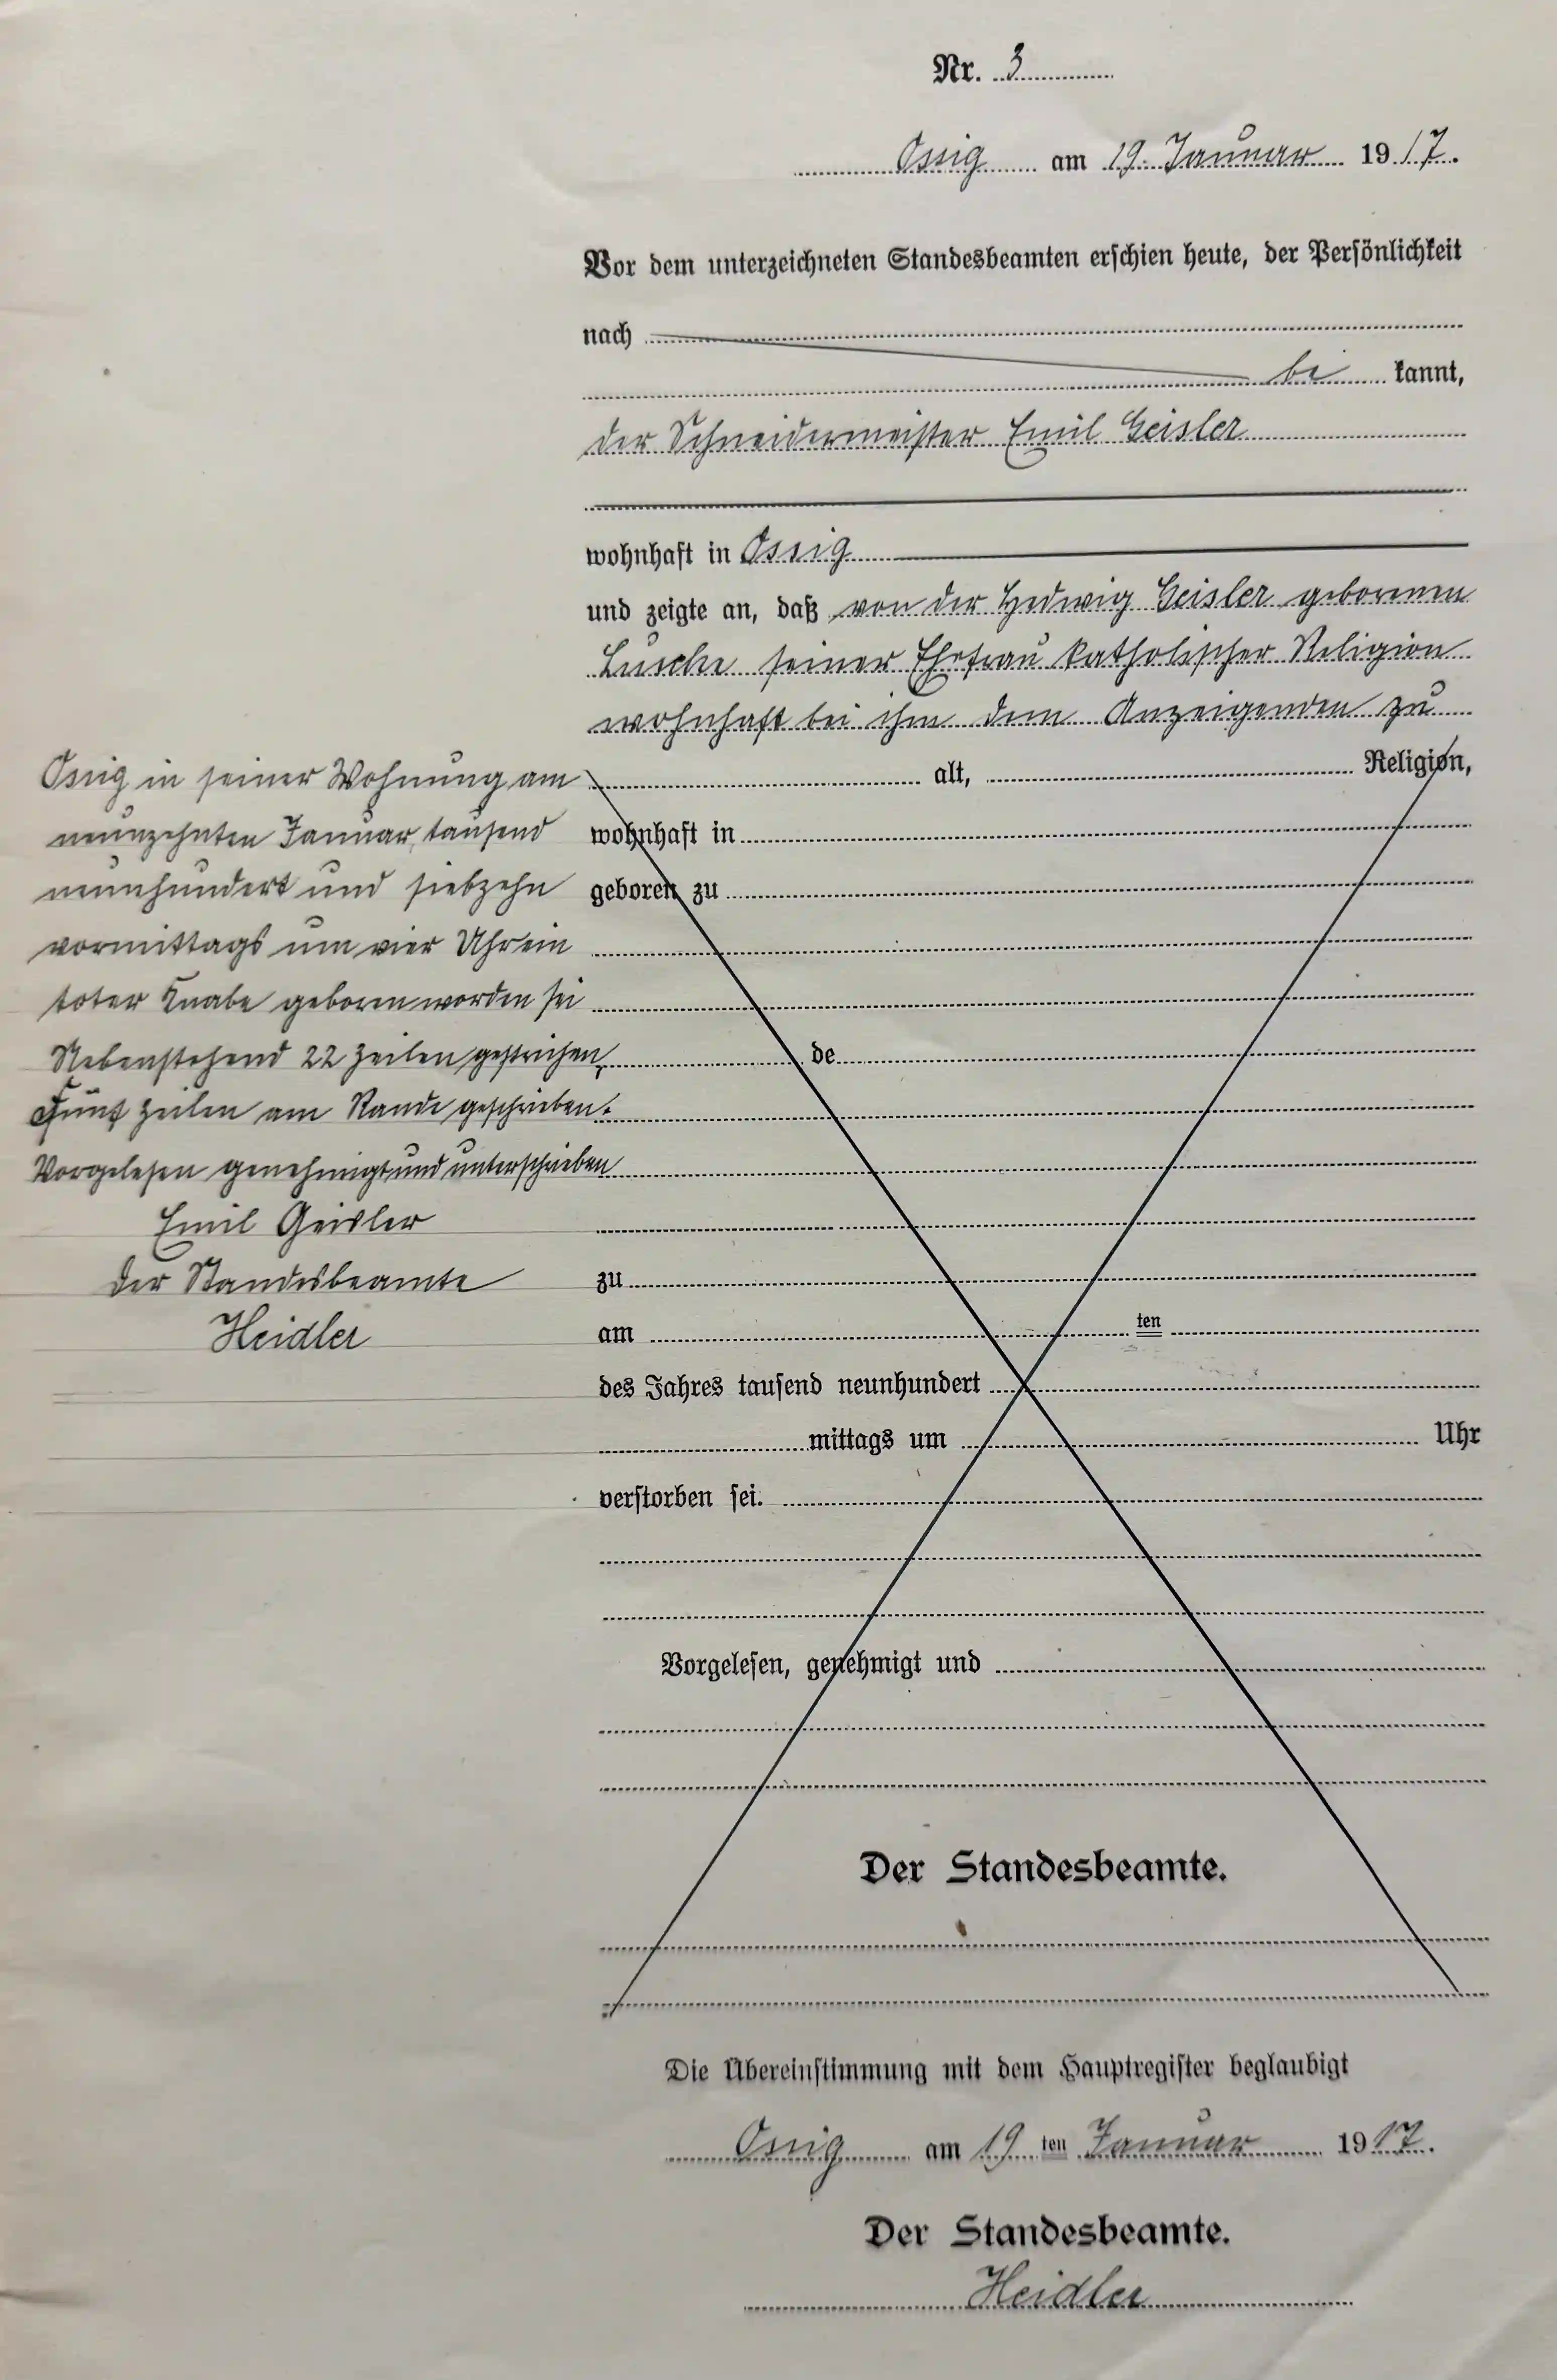 Nr. 3
Ossig am 19. Januar 1917.
Vor dem unterzeichneten Standesbeamten erschien heute, der Persönlichkeit
nach
be kannt,
der Schneidermeister Emil Geisler
wohnhaft in Ossig
und zeigte an, daß von der Hedwig Geisler geborenen
Lusche seiner Ehefrau katholischer Religion
wohnhaft bei ihm dem Anzeigenden zu
Ossig in seiner Wohnung am
neunzehnten Januar tausend
neunhundert und siebzehn
vormittags um vier Uhr ein
toter Knabe geboren worden sei
Nebenstehend 22 Zeilen gestrichen,
Fünf Zeilen am Rande geschrieben.
Vorgelesen genehmigt und unterschrieben
Emil Geisler
Der Standesbeamte
Heidler
alt, Religion,
wohnhaft in
geboren zu
de
zu
am ten
des Jahres tausend neunhundert
mittags um Uhr
verstorben sei.
Vorgelesen, genehmigt und
Der Standesbeamte.
Die Übereinstimmung mit dem Hauptregister beglaubigt
Ossig am 19 ten Januar 1917.
Der Standesbeamte.
Heidler